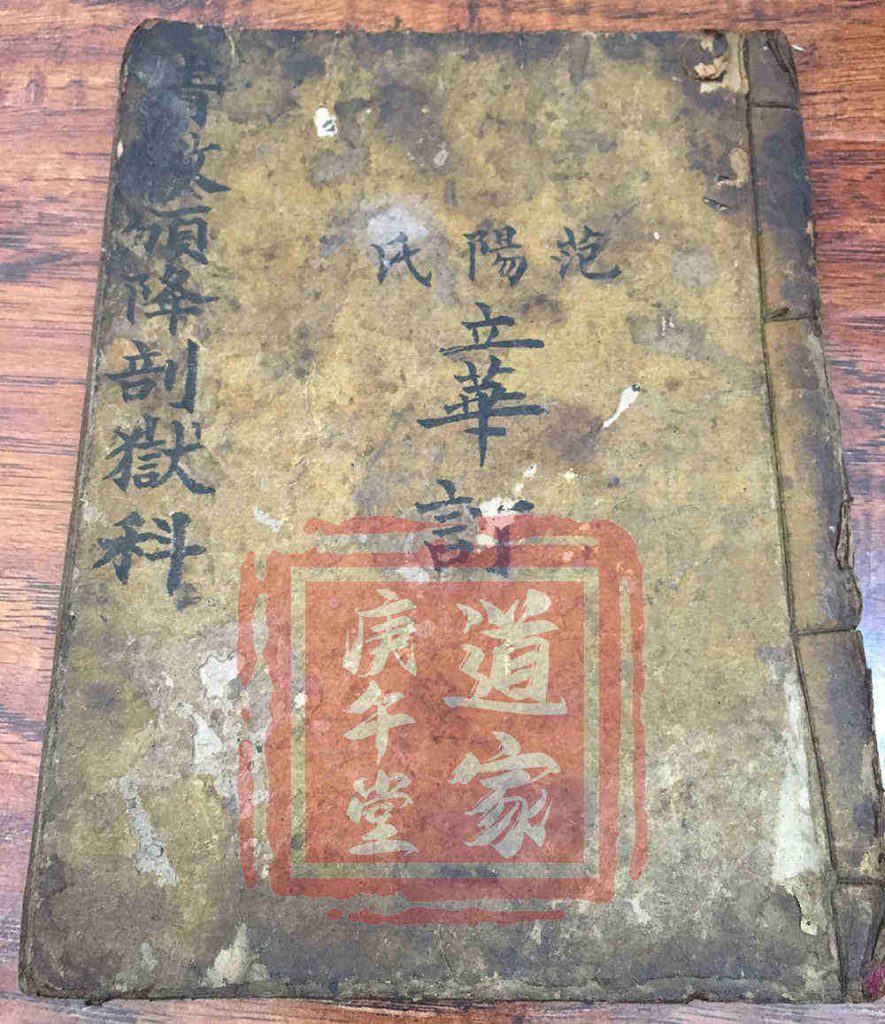 范陽氏
立華訂
頒降剖獄科
道家
庚午堂